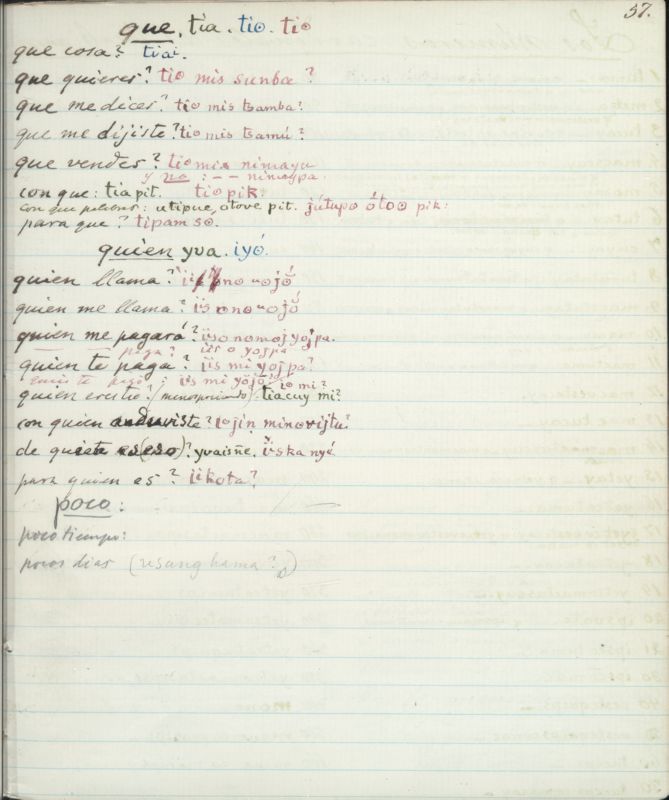 57.
que, tia. tio. tio
que cosa? tiai.
que quieres? tio mis sunba?
que me dices? tio mis tsamba?
que me dijiste? tio mis tsamú?
que vendes? tio mis nimayu
y no : - - nimaypa.
con que: tia pit. tio pik:
con que palabras: utipue, otove pit. jútupo ótoo pik:
para que? tipam so.
quien yva. iyó.
quien llama? no
quien me llama? iìs
quien me pagará? iiso nomoj yojpa.
paga? iìs o yojpa
quien te paga? iìs mi yojpa?
iìs mi yojó? io mi?
quien eres tu? tiacuy mi?
con quien anduviste? iojin minovijtu?
de quien es (eso)? yvaisñe. iìska nyé
para quien es? iìkota?
poco:
poco tiempo:
pocos dias